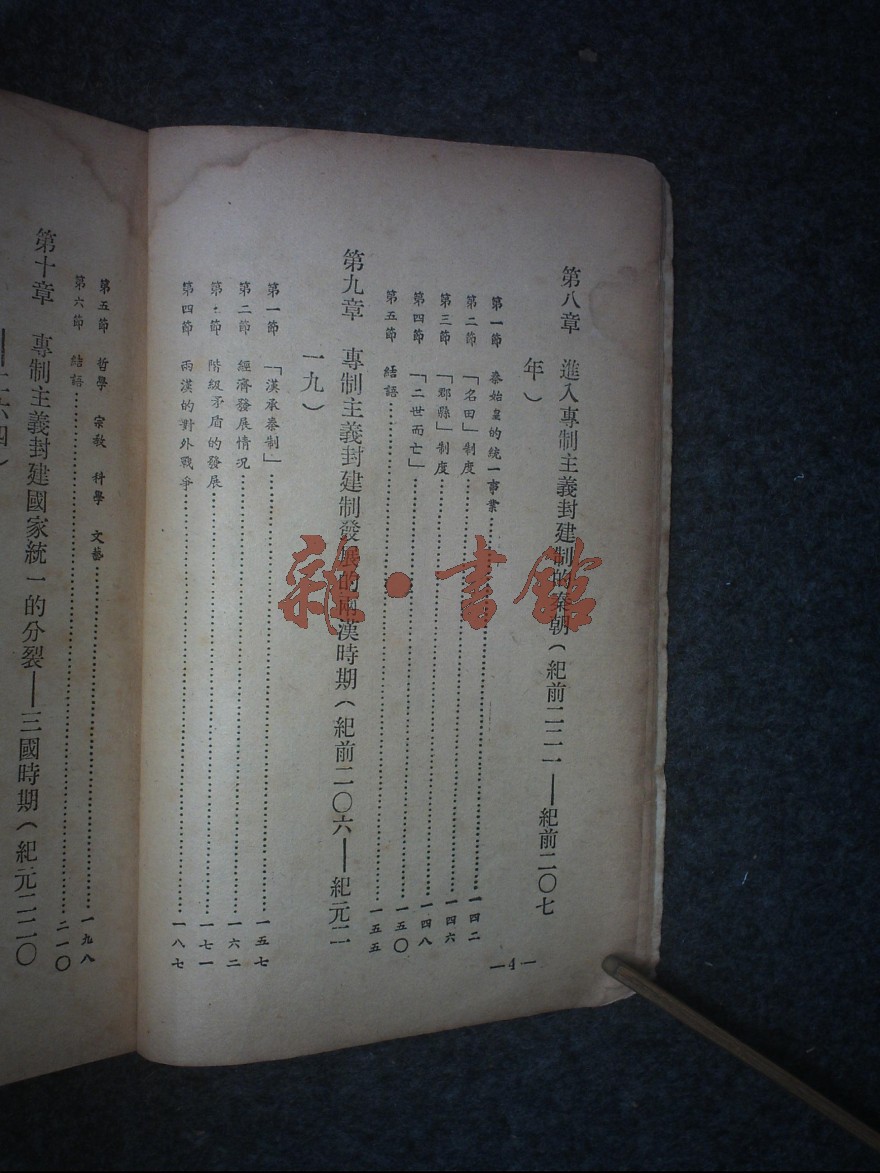 第八章　進入專制主義封建制的秦朝（紀前二二一——紀前二〇七
年）
第一節　秦始皇的統一事業……一四二
第二節　「名田」制度……一四六
第三節　「郡縣」制度……一四八
第四節　「二世而亡」……一五〇
第五節　結語……一五五
第九章　專制主義封建制發展的兩漢時期（紀前二〇六——紀元二
一九）
第一節　「漢承秦制」……一五七
第二節　經濟發展情況……一六二
第 節　階級矛盾的發展……一七一
第四節　兩漢的對外戰爭……一八七
—4—
第五節　哲學　宗教　科學　文藝……一九八
第六節　結語……二一〇
第十章　專制主義封建國家統一的分裂——三國時期（紀元二二〇
——二六四）
雜·書館